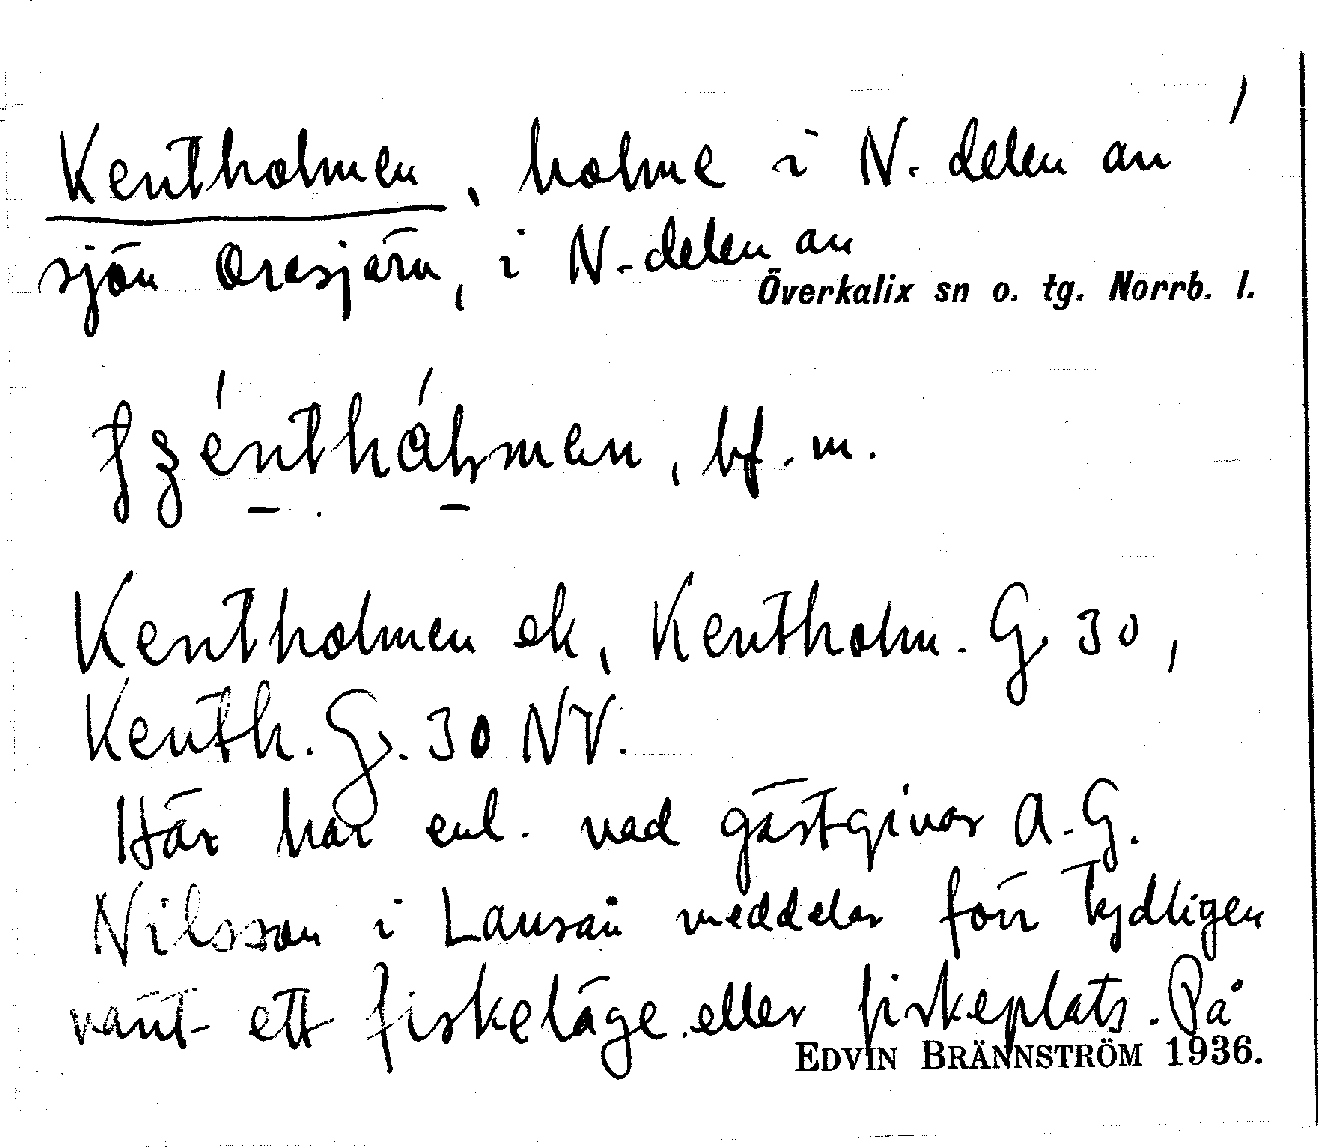 Kentholmen, holme i N. delen av
sjön Oresjärv, i N-delen av
Överkalix sn o. tg. Norrb. l.
bf. m.
Kentholmen ek, Kentholm. G 30,
Kenth. G. 30 NV.
Här har enl. vad gästgivar A.G.
Nilsson i Lansån meddelar förr tydligen
varit ett fiskeläge eller fiskeplats. På
EDVIN BRÄNNSTRÖM 1936.